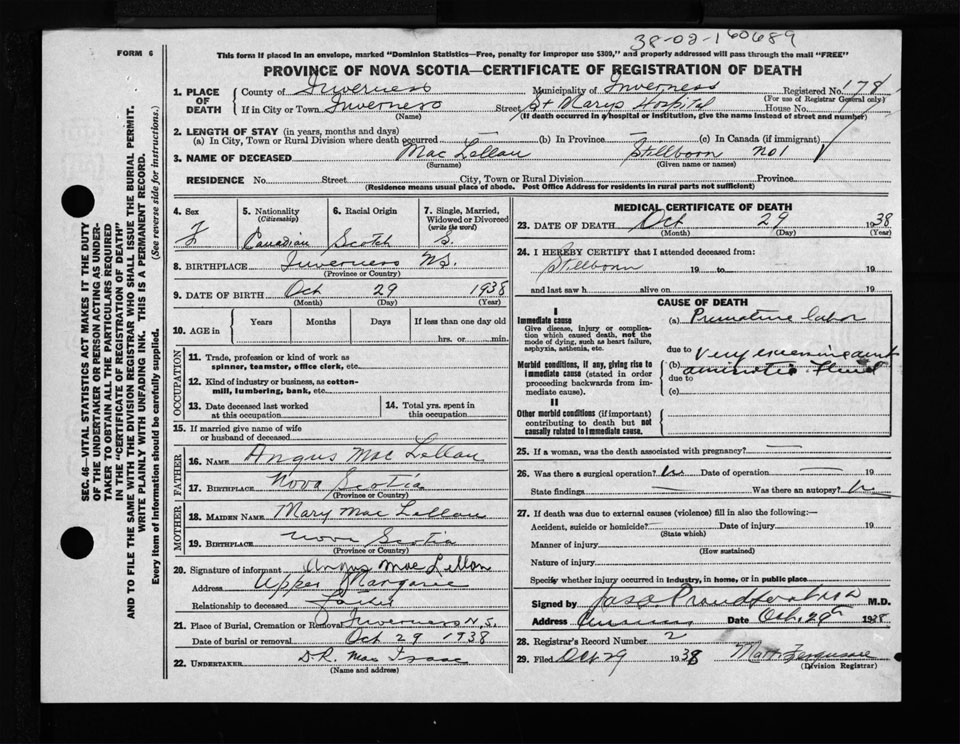 38-02-160689
FORM 6
This form if placed in an envelope, marked "Dominion Statistics—Free, penalty for improper use $300," and properly addressed will pass through the mail "FREE"
PROVINCE OF NOVA SCOTIA—CERTIFICATE OF REGISTRATION OF DEATH
1. PLACE OF DEATH
County of Inverness Municipality of Inverness Registered No. 178
(For use of Registrar General only)
If in City or Town Inverness Street St Marys Hospital House No.
(Name) (If death occurred in a hospital or institution, give the name instead of street and number)
2. LENGTH OF STAY (in years, months and days)
(a) In City, Town or Rural Division where death occurred — (b) In Province — (c) In Canada (if immigrant)
3. NAME OF DECEASED Mac Lellan Stillborn no 1
(Surname) (Given name or names)
RESIDENCE No. Street City, Town or Rural Division Province
(Residence means usual place of abode. Post Office Address for residents in rural parts not sufficient)
4. Sex F
5. Nationality (Citizenship) Canadian
6. Racial Origin Scotch
7. Single, Married, Widowed or Divorced (write the word) S.
8. BIRTHPLACE Inverness N.S.
(Province or Country)
9. DATE OF BIRTH Oct 29 1938
(Month) (Day) (Year)
10. AGE in Years Months Days If less than one day old
hrs. or min.
OCCUPATION
11. Trade, profession or kind of work as
spinner, teamster, office clerk, etc.
12. Kind of industry or business, as cotton-
mill, lumbering, bank, etc.
13. Date deceased last worked
at this occupation
14. Total yrs. spent in
this occupation
15. If married give name of wife
or husband of deceased
FATHER
16. NAME Angus Mac Lellan
17. BIRTHPLACE Nova Scotia
(Province or Country)
MOTHER
18. MAIDEN NAME Mary Mac Lellan
19. BIRTHPLACE Nova Scotia
(Province or Country)
20. Signature of informant Angus MacLellan
Address Upper Margaree
Relationship to deceased Father
21. Place of Burial, Cremation or Removal Inverness N.S.
Date of burial or removal Oct 29 1938
22. UNDERTAKER D.R. Mac Isaac
(Name and address)
MEDICAL CERTIFICATE OF DEATH
23. DATE OF DEATH Oct 29 1938
(Month) (Day) (Year)
24. I HEREBY CERTIFY that I attended deceased from:
Stillborn 19 to 19
and last saw h alive on 19
CAUSE OF DEATH
I
Immediate cause (a) Premature labor
Give disease, injury or complica-
tion which caused death, not the
mode of dying, such as heart failure,
asphyxia, asthenia, etc.
due to
Morbid conditions, if any, giving rise to
immediate cause (stated in order
proceeding backwards from im-
mediate cause).
(b) Very excessive amt
amniotic fluid
due to
(c)
II
Other morbid conditions (if important)
contributing to death but not
causally related to immediate cause.
25. If a woman, was the death associated with pregnancy? —
26. Was there a surgical operation? Date of operation — 19
State findings — Was there an autopsy?
27. If death was due to external causes (violence) fill in also the following:—
Accident, suicide or homicide? Date of injury 19
(State which)
Manner of injury
(How sustained)
Nature of injury
Specify whether injury occurred in industry, in home, or in public place
Signed by Proudfoot M.D.
Address Date Oct. 29 1938
28. Registrar's Record Number 2
29. Filed Oct 29 1938
(Division Registrar)
SEC. 46—VITAL STATISTICS ACT MAKES IT THE DUTY
OF THE UNDERTAKER OR PERSON ACTING AS UNDER-
TAKER TO OBTAIN ALL THE PARTICULARS REQUIRED
IN THE "CERTIFICATE OF REGISTRATION OF DEATH"
AND TO FILE THE SAME WITH THE DIVISION REGISTRAR WHO SHALL ISSUE THE BURIAL PERMIT.
WRITE PLAINLY WITH UNFADING INK. THIS IS A PERMANENT RECORD.
Every item of information should be carefully supplied. (See reverse side for instructions.)